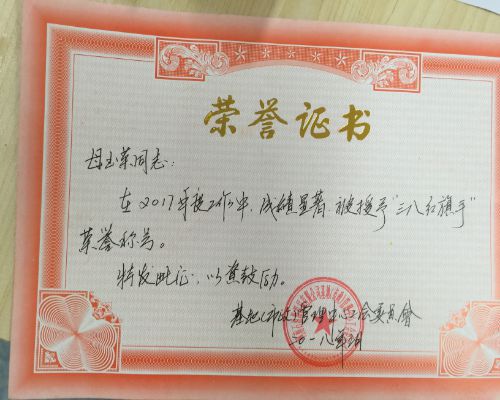 荣誉证书
母玉荣同志：
在2017年度工作中，成绩显著，被授予“三八红旗手”
荣誉称号。
特发此证，以资鼓励。
基地(市政)管理中心工会委员会
二〇一八年